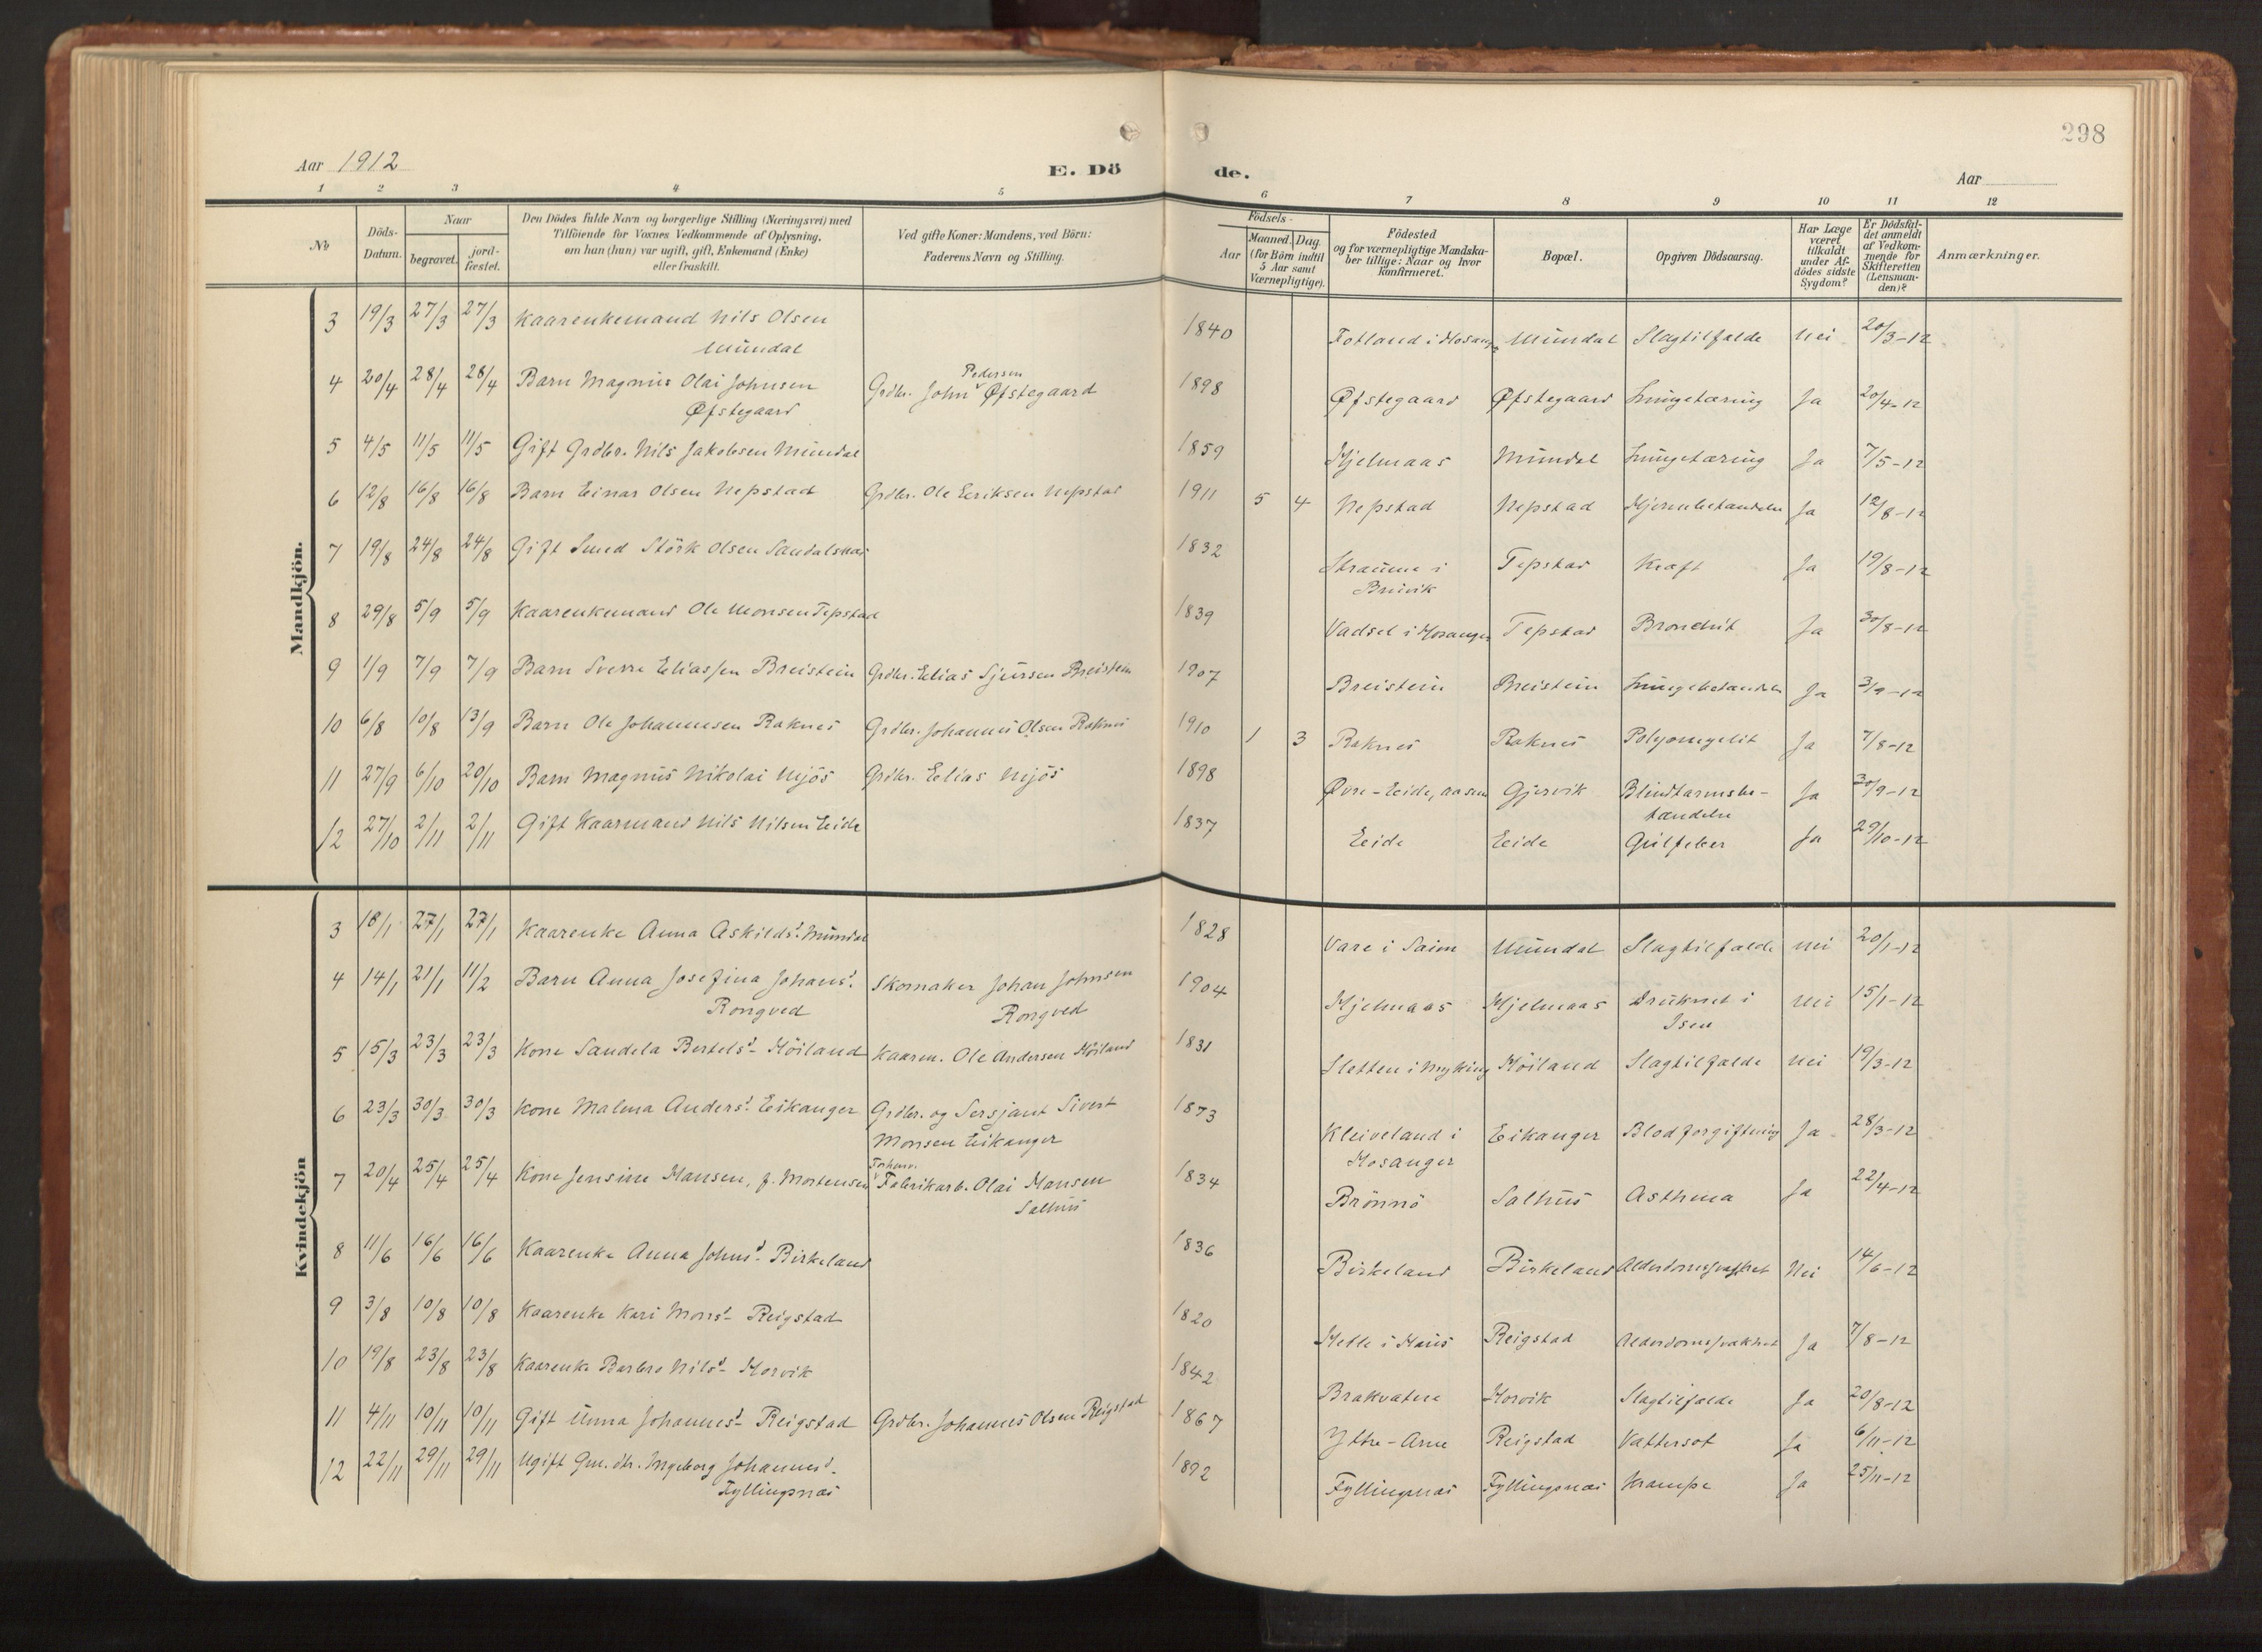 298
Aar 1912
E. Dö de.
Aar
1 2 3 4 5 6 7 8 9 10 11 12
No
Döds-Datum.
Naar
begravet.
jord-fæstet.
Den Dödes fulde Navn og borgerlige Stilling (Næringsvei) med
Tilföiende for Voxnes Vedkommende af Oplysning,
om han (hun) var ugift, gift, Enkemand (Enke)
eller fraskilt.
Ved gifte Koner: Mandens, ved Börn:
Faderens Navn og Stilling.
Födsels-
Aar
Maaned. Dag.
(for Börn indtil
5 Aar samt
Værnepligtige).
Födested
og for værnepligtige Mandska-
ber tillige: Naar og hvor
konfirmeret.
Bopæl.
Opgiven Dödsaarsag.
Har Læge
været
tilkaldt
under Af-
dödes sidste
Sygdom?
Er Dödsfal-
det anmeldt
af Vedkom-
mende for
Skifteretten
(Lensman-
den)?
Anmærkninger.
Mandkjön.
3 19/3 27/3 27/3 Kaarenkemand Nils Olsen 1840 Fotland i Hosang. Mundal Slagtilfælde Nei 20/3-12
Mundal
4 20/4 28/4 28/4 Barn Magnus Olai Johnsen Grdbr. John Pedersen Øfstegaard 1898 Øfstegaard Øfstegaard Lungetæring Ja 20/4-12
Øfstegaard
5 4/5 11/5 11/5 Gift Grdbr. Nils Jakobsen Mundal 1859 Hjelmaas Mundal Lungetæring Ja 7/5-12
6 12/8 16/8 16/8 Barn Einar Olsen Nepstad Grdbr. Ole Eriksen Nepstad 1911 5 4 Nepstad Nepstad Hjernebetændelse Ja 12/8-12
7 19/8 24/8 24/8 Gift Smed Störk Olsen 1832 Straume i Tepstad Kræft Ja 19/8-12
Bruvik
8 29/8 5/9 5/9 Kaarenkemand Ole Monsen Tepstad 1839 Vadset i Hosanger Tepstad Bronchit Ja 30/8-12
9 1/9 7/9 7/9 Barn Sverre Eliassen Breistein Grdbr. Elias Sjursen Breistein 1907 Breistein Breistein Lungebetændelse Ja 3/9-12
10 6/8 10/8 13/9 Barn Ole Johannesen Raknes Grdbr. Johannes Olsen Raknes 1910 1 3 Raknes Raknes Polyomyelit Ja 7/8-12
11 27/9 6/10 20/10 Barn Magnus Nikolai Mjös Grdbr. Elias Mjös 1898 Øvre-Eide, Aasen Gjervik Blindtarmsbe- Ja 30/9-12
tændelse
12 27/10 2/11 2/11 Gift Kaarmand Nils Nilsen Eide 1837 Eide Eide Gulfeber Ja 29/10-12
Kvindekjön
3 18/1 27/1 27/1 Kaarenke Anna Askildsd. Mundal 1828 Vare i Saim Mundal Slagtilfælde Nei 20/1-12
4 14/1 21/1 11/2 Barn Anna Josefina Johansd. Skomaker Johan Johnsen 1904 Hjelmaas Hjelmaas Druknet i Nei 15/1-12
Rongved Rongved Isen
5 15/3 23/3 23/3 Kone Sandela Bertelsd. Höiland Kaarm. Ole Andersen Höiland 1831 Sletten i Myking Höiland Slagtilfælde Nei 19/3-12
6 23/3 30/3 30/3 Kone Malena Andersd. Eikanger Grdbr. og Sersjant Sivert 1873 Kleiveland i Eikanger Blodforgiftning Ja 28/3-12
Monsen Eikanger Hosanger
7 20/4 25/4 25/4 Kone Jensine Hansen, f. Mortensen Forhenv. Fabrikarb. Olai Hansen 1834 Brönnö Salhus Asthma Ja 22/4-12
Salhus
8 11/6 16/6 16/6 Kaarenke Anna Johnsd. Birkeland 1836 Birkeland Birkeland Alderdomssvakhet Nei 14/6-12
9 3/8 10/8 10/8 Kaarenke Kari Monsd. Reigstad 1820 Hetle i Haus Reigstad Alderdomssvakhet Ja 7/8-12
10 19/8 23/8 23/8 Kaarenke Barbro Nilsd. Horvik 1842 Brakvatne Horvik Slagtilfælde Ja 20/8-12
11 4/11 10/11 10/11 Gift Unna Johannesd. Reigstad Grdbr. Johannes Olsen Reigstad 1867 Ytre-Arne Reigstad Vattersot Ja 6/11-12
12 22/11 29/11 29/11 Ugift Gm. dtr. Ingeborg Johannesd. 1892 Fyllingsnæs Fyllingsnæs Krampe Ja 25/11-12
Fyllingsnæs